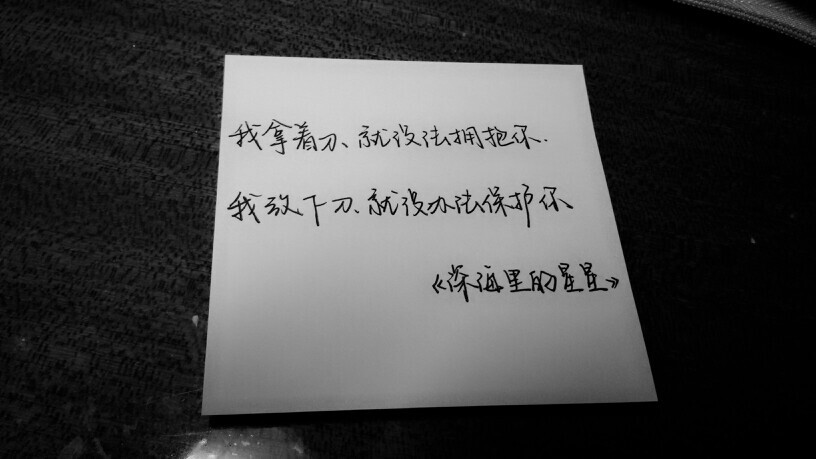 我拿着刀、就没法拥抱你.
我放下刀、就没办法保护你
《深海里的星星》